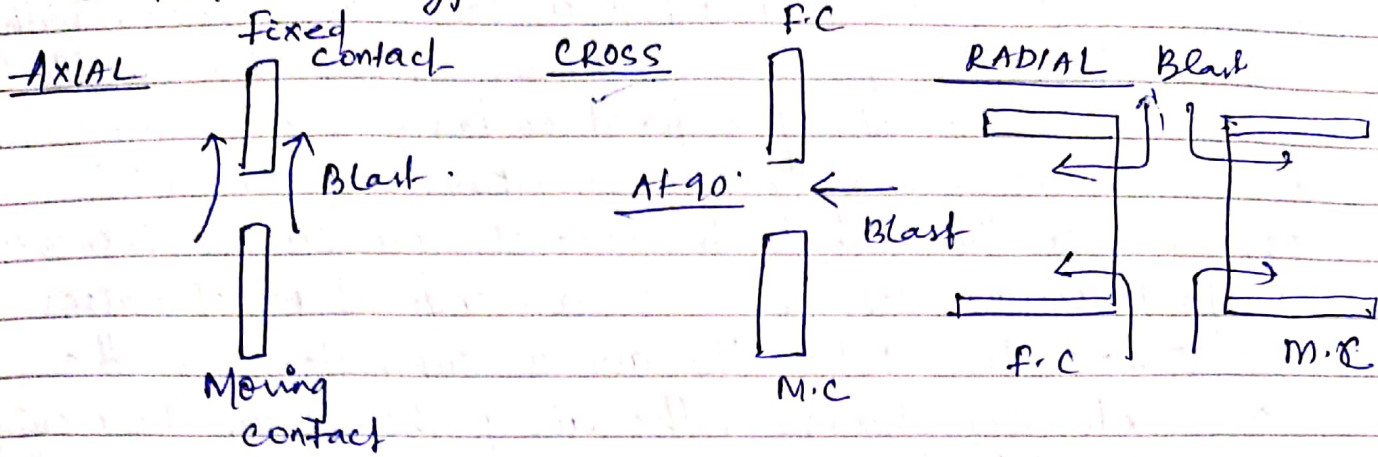 AXIAL
Fixed
Contact
Blast .
Moving
contact
CROSS
F.C
At 90°
Blast
M.C
RADIAL Blast
F.C
M.C